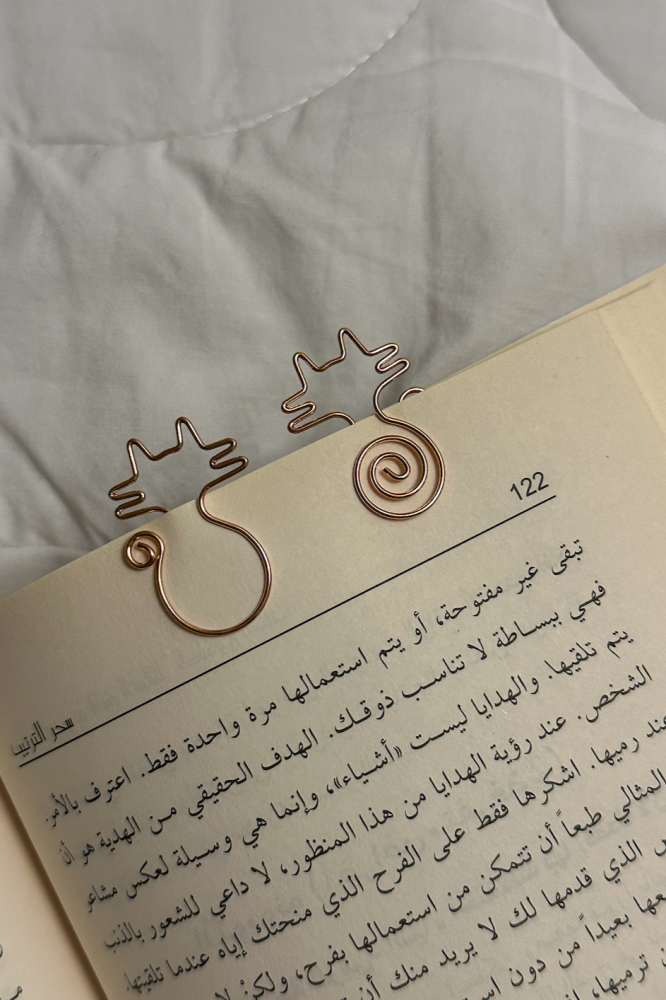 122
سحر الترتيب
تبقى غير مفتوحة، أو يتم استعمالها مرة واحدة فقط. اعترف بالأمر.
فهي ببساطة لا تناسب ذوقك. الهدف الحقيقي من الهدية هو أن
يتم تلقيها. والهدايا ليست «أشياء»، وإنما هي وسيلة لعكس مشاعر
الشخص. عند رؤية الهدايا من هذا المنظور، لا داعي للشعور بالذنب
عند رميها. اشكرها فقط على الفرح الذي منحتك إياه عندما تلقيتها.
المثالي طبعاً أن تتمكن من استعمالها بفرح، ولكن لا
الذي قدمها لك لا يريد منك أن
بعيداً من دون
ترميها،